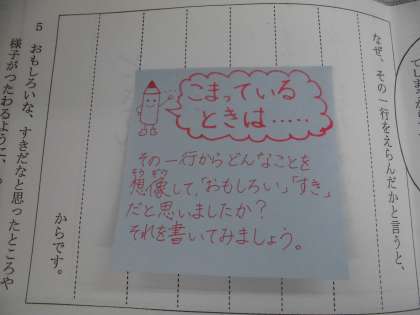 てしま
なぜ、その一行をえらんだかと言うと、
こまっている
ときは・・・・・
その一行からどんなことを
想像して、「おもしろい」「すき」
そうぞう
だと思いましたか?
それを書いてみましょう。
からです。
5 おもしろいな、すきだなと思ったところや
様子がつたわるように、